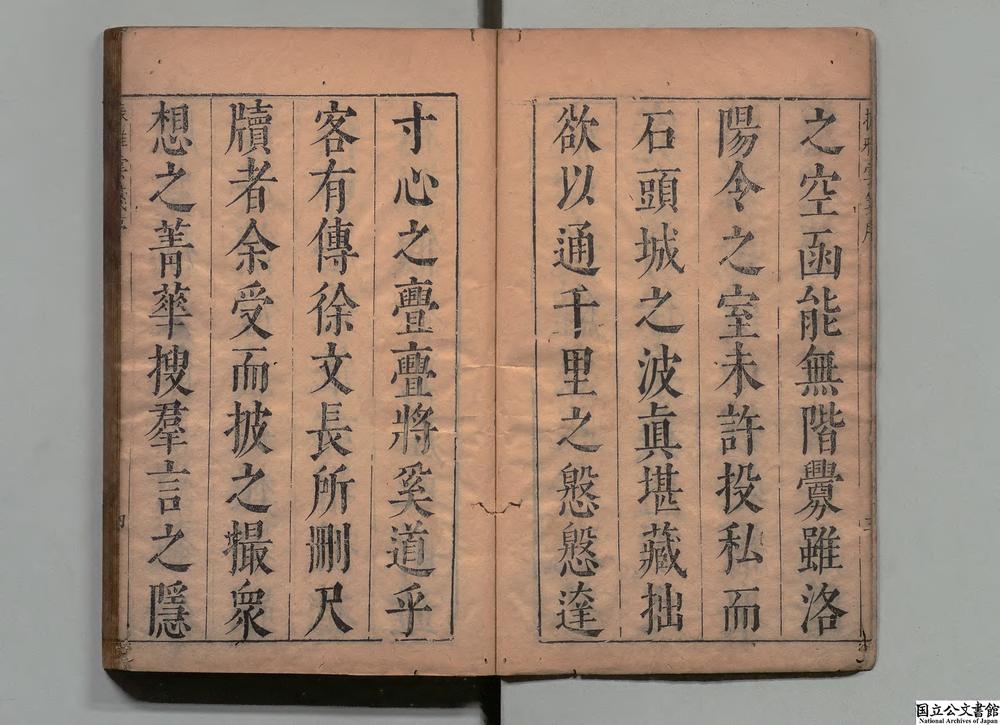 之空函能無階釁雖洛
陽令之室未許投私而
石頭城之波眞堪藏拙
欲以通千里之慇慇達
寸心之亹亹將奚道乎
客有傳徐文長所刪尺
牘者余受而披之撮衆
想之菁華搜羣言之隱
国立公文書館
National Archives of Japan